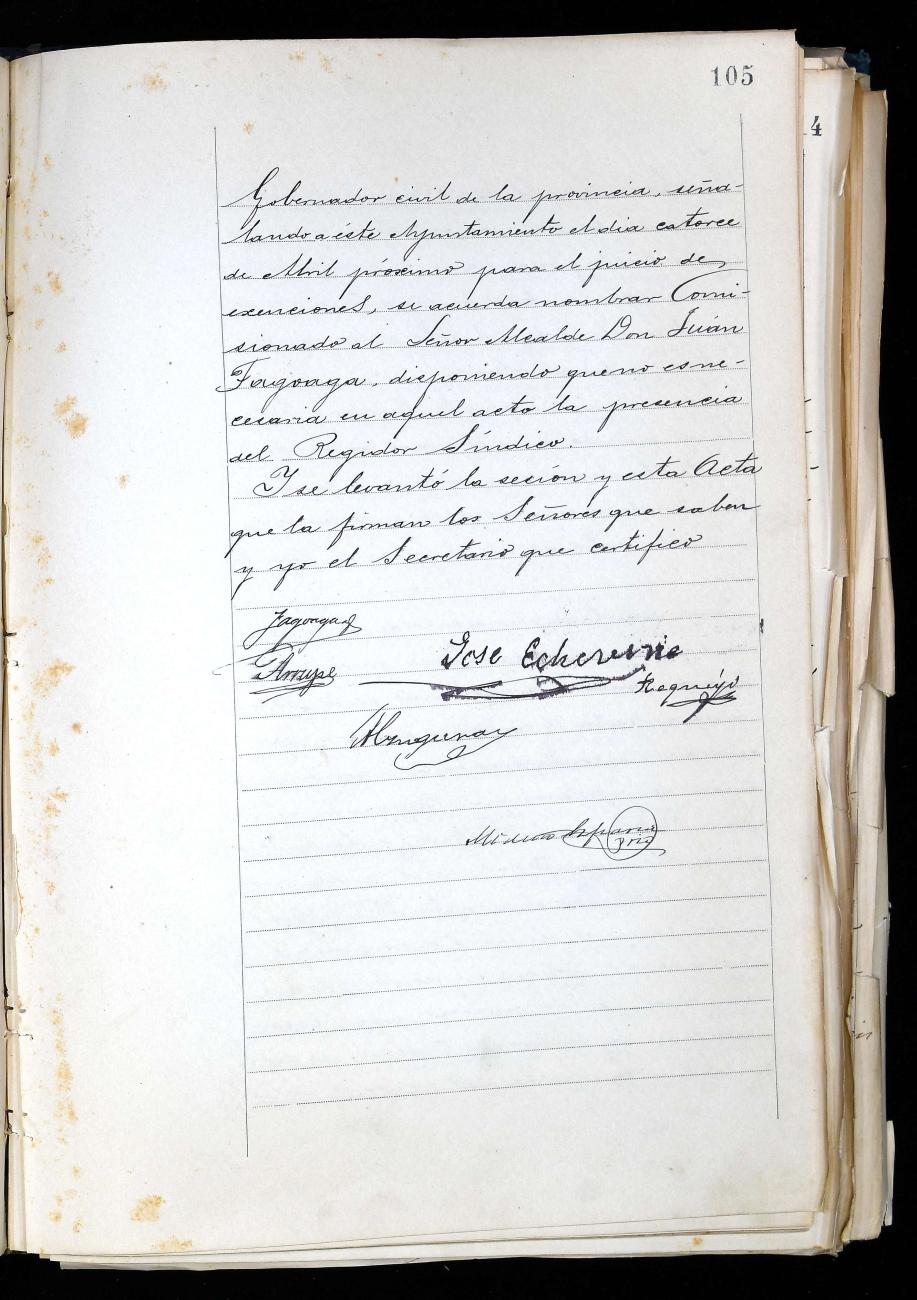 105
4
Gobernador civil de la provincia, seña-
lando a este Ayuntamiento el dia catorce
de Abril próximo para el juicio de
exenciones, se acuerda nombrar Comi-
sionado al Señor Alcalde Don Juán
Fagoaga, disponiendo que no es ne-
cesaria en aquel acto la presencia
del Regidor Síndico.
Y se levantó la sesión y esta Acta
que la firman los Señores que saben
y yo el Secretario que certifico
Fagoaga
Jose Echeverria